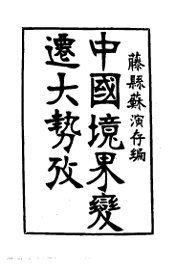 藤縣蘇演存編
中國境界變
遷大勢攷